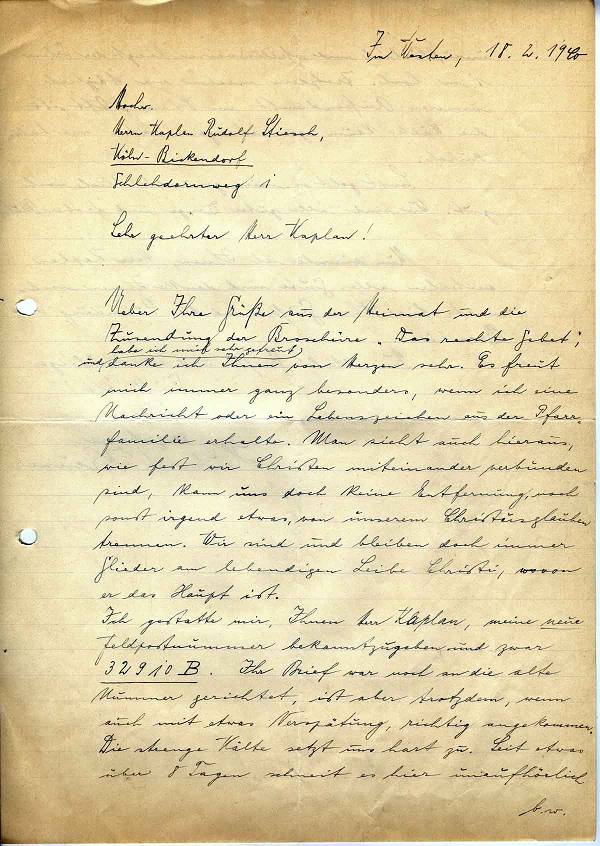 Im Westen, 18. 2. 1940
Hochw.
Herrn Kaplan Rudolf Stiesch,
Köln-Bickendorf
Schlehdornweg 1
Sehr geehrter Herr Kaplan!
Ueber Ihre Grüße aus der Heimat und die
Zusendung der Broschüre „Das rechte Gebet",
habe ich mich sehr gefreut
und danke ich Ihnen von Herzen sehr. Es freut
mich immer ganz besonders, wenn ich eine
Nachricht oder ein Lebenszeichen aus der Pfarr-
familie erhalte. Man sieht auch hieraus,
wie fest wir Christen miteinander verbunden
sind, kann uns doch keine Entfernung, noch
sonst irgend etwas, von unserem Christusglauben
trennen. Wir sind und bleiben doch immer
Glieder am lebendigen Leibe Christi, wovon
er das Haupt ist.
Ich gestatte mir, Ihnen Herr Kaplan, meine neue
Feldpostnummer bekanntzugeben und zwar
32910 B. Ihr Brief war noch an die alte
Nummer gerichtet, ist aber trotzdem, wenn
auch mit etwas Verspätung, richtig angekommen.
Die strenge Kälte setzt uns hart zu. Seit etwas
über 8 Tagen schneit es hier unaufhörlich
b.w.